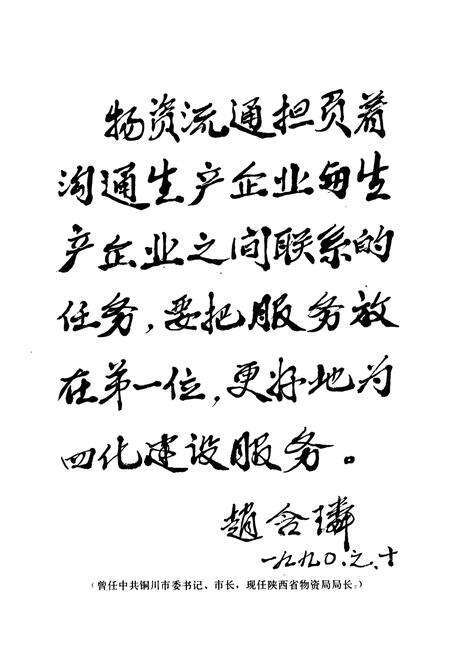 物资流通担负着
沟通生产企业与生
产企业之间联系的
任务，要把服务放
在第一位，更好地为
四化建设服务。
趙含璘
一九九〇.六.十
（曾任中共铜川市委书记、市长，现任陕西省物资局局长。）